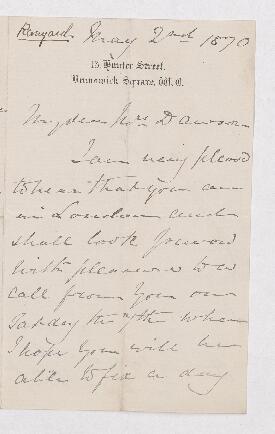 Ranyard. May 2nd 1870
13, Hunter Street,
Brunswick Square, W.C.
My dear Mrs Dawson
I am very pleased
to hear that you are
in London and
shall look forward
with pleasure to a
call from you on
the 7th when
I hope you will be
able to fix a day